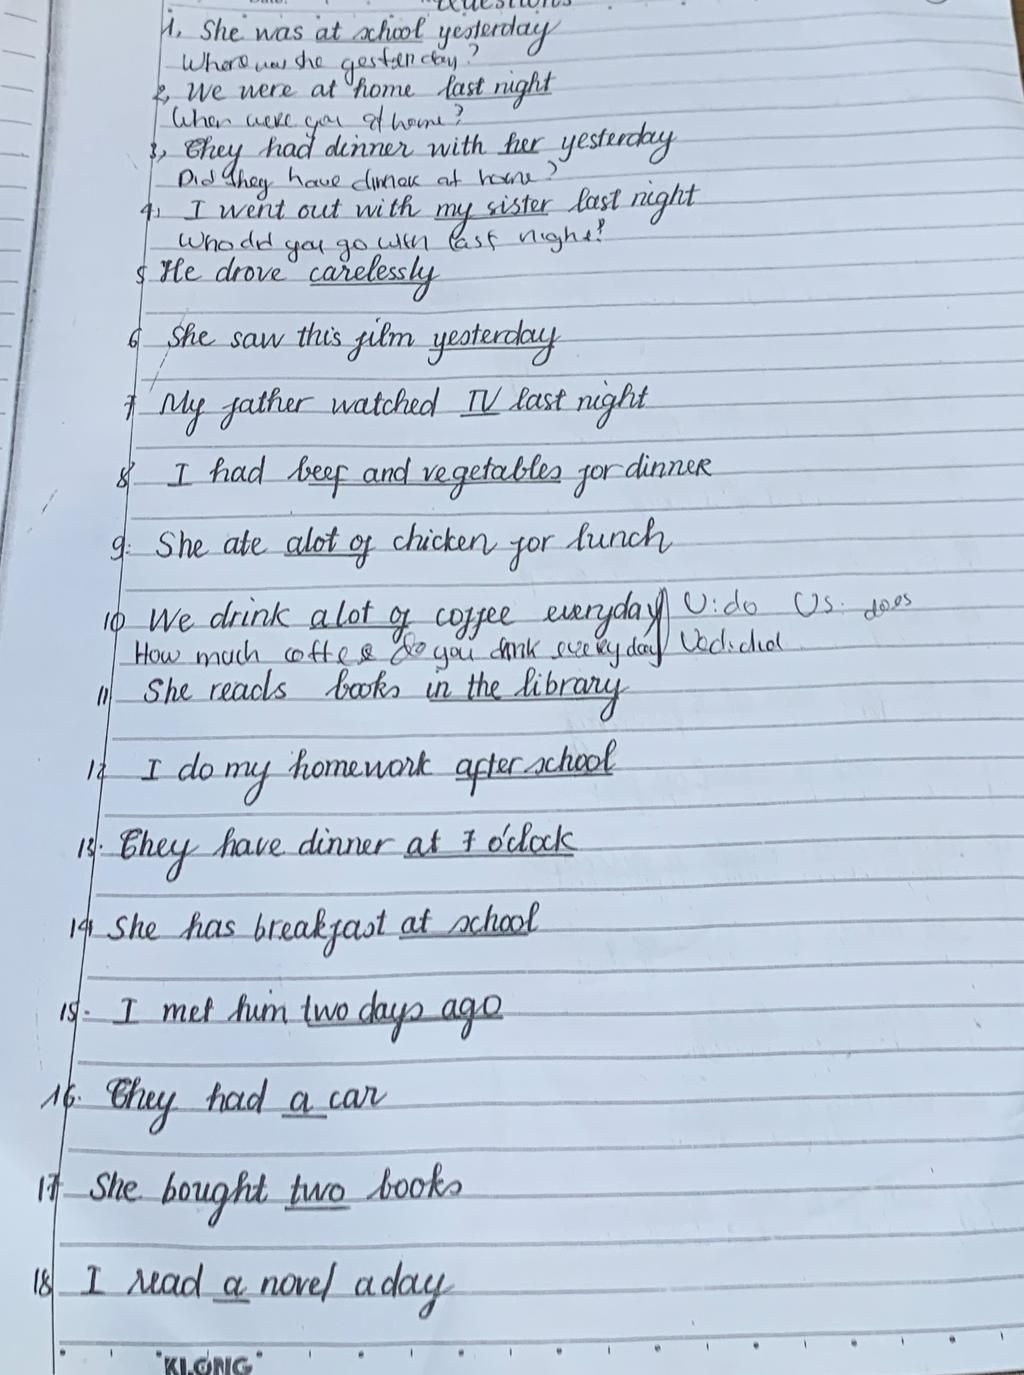 Questions
1. She was at school yesterday
Where was she yesterday?
2, We were at home last night
When were you at home?
3, They had dinner with her yesterday
Did they have dinner at home?
4, I went out with my sister last night
Who did you go with last night?
5 He drove carelessly
6 She saw this film yesterday
7 My father watched TV last night
8 I had beef and vegetables for dinner
9. She ate alot of chicken for lunch
10 We drink a lot of coffee everyday V: do Vs: does
How much coffee do you drink everyday Ved: did
11 She reads books in the library
12 I do my homework after school
13. They have dinner at 7 o'clock
14 She has breakfast at school
15. I met him two days ago
16. They had a car
17 She bought two books
18 I read a novel a day
"KLONG"